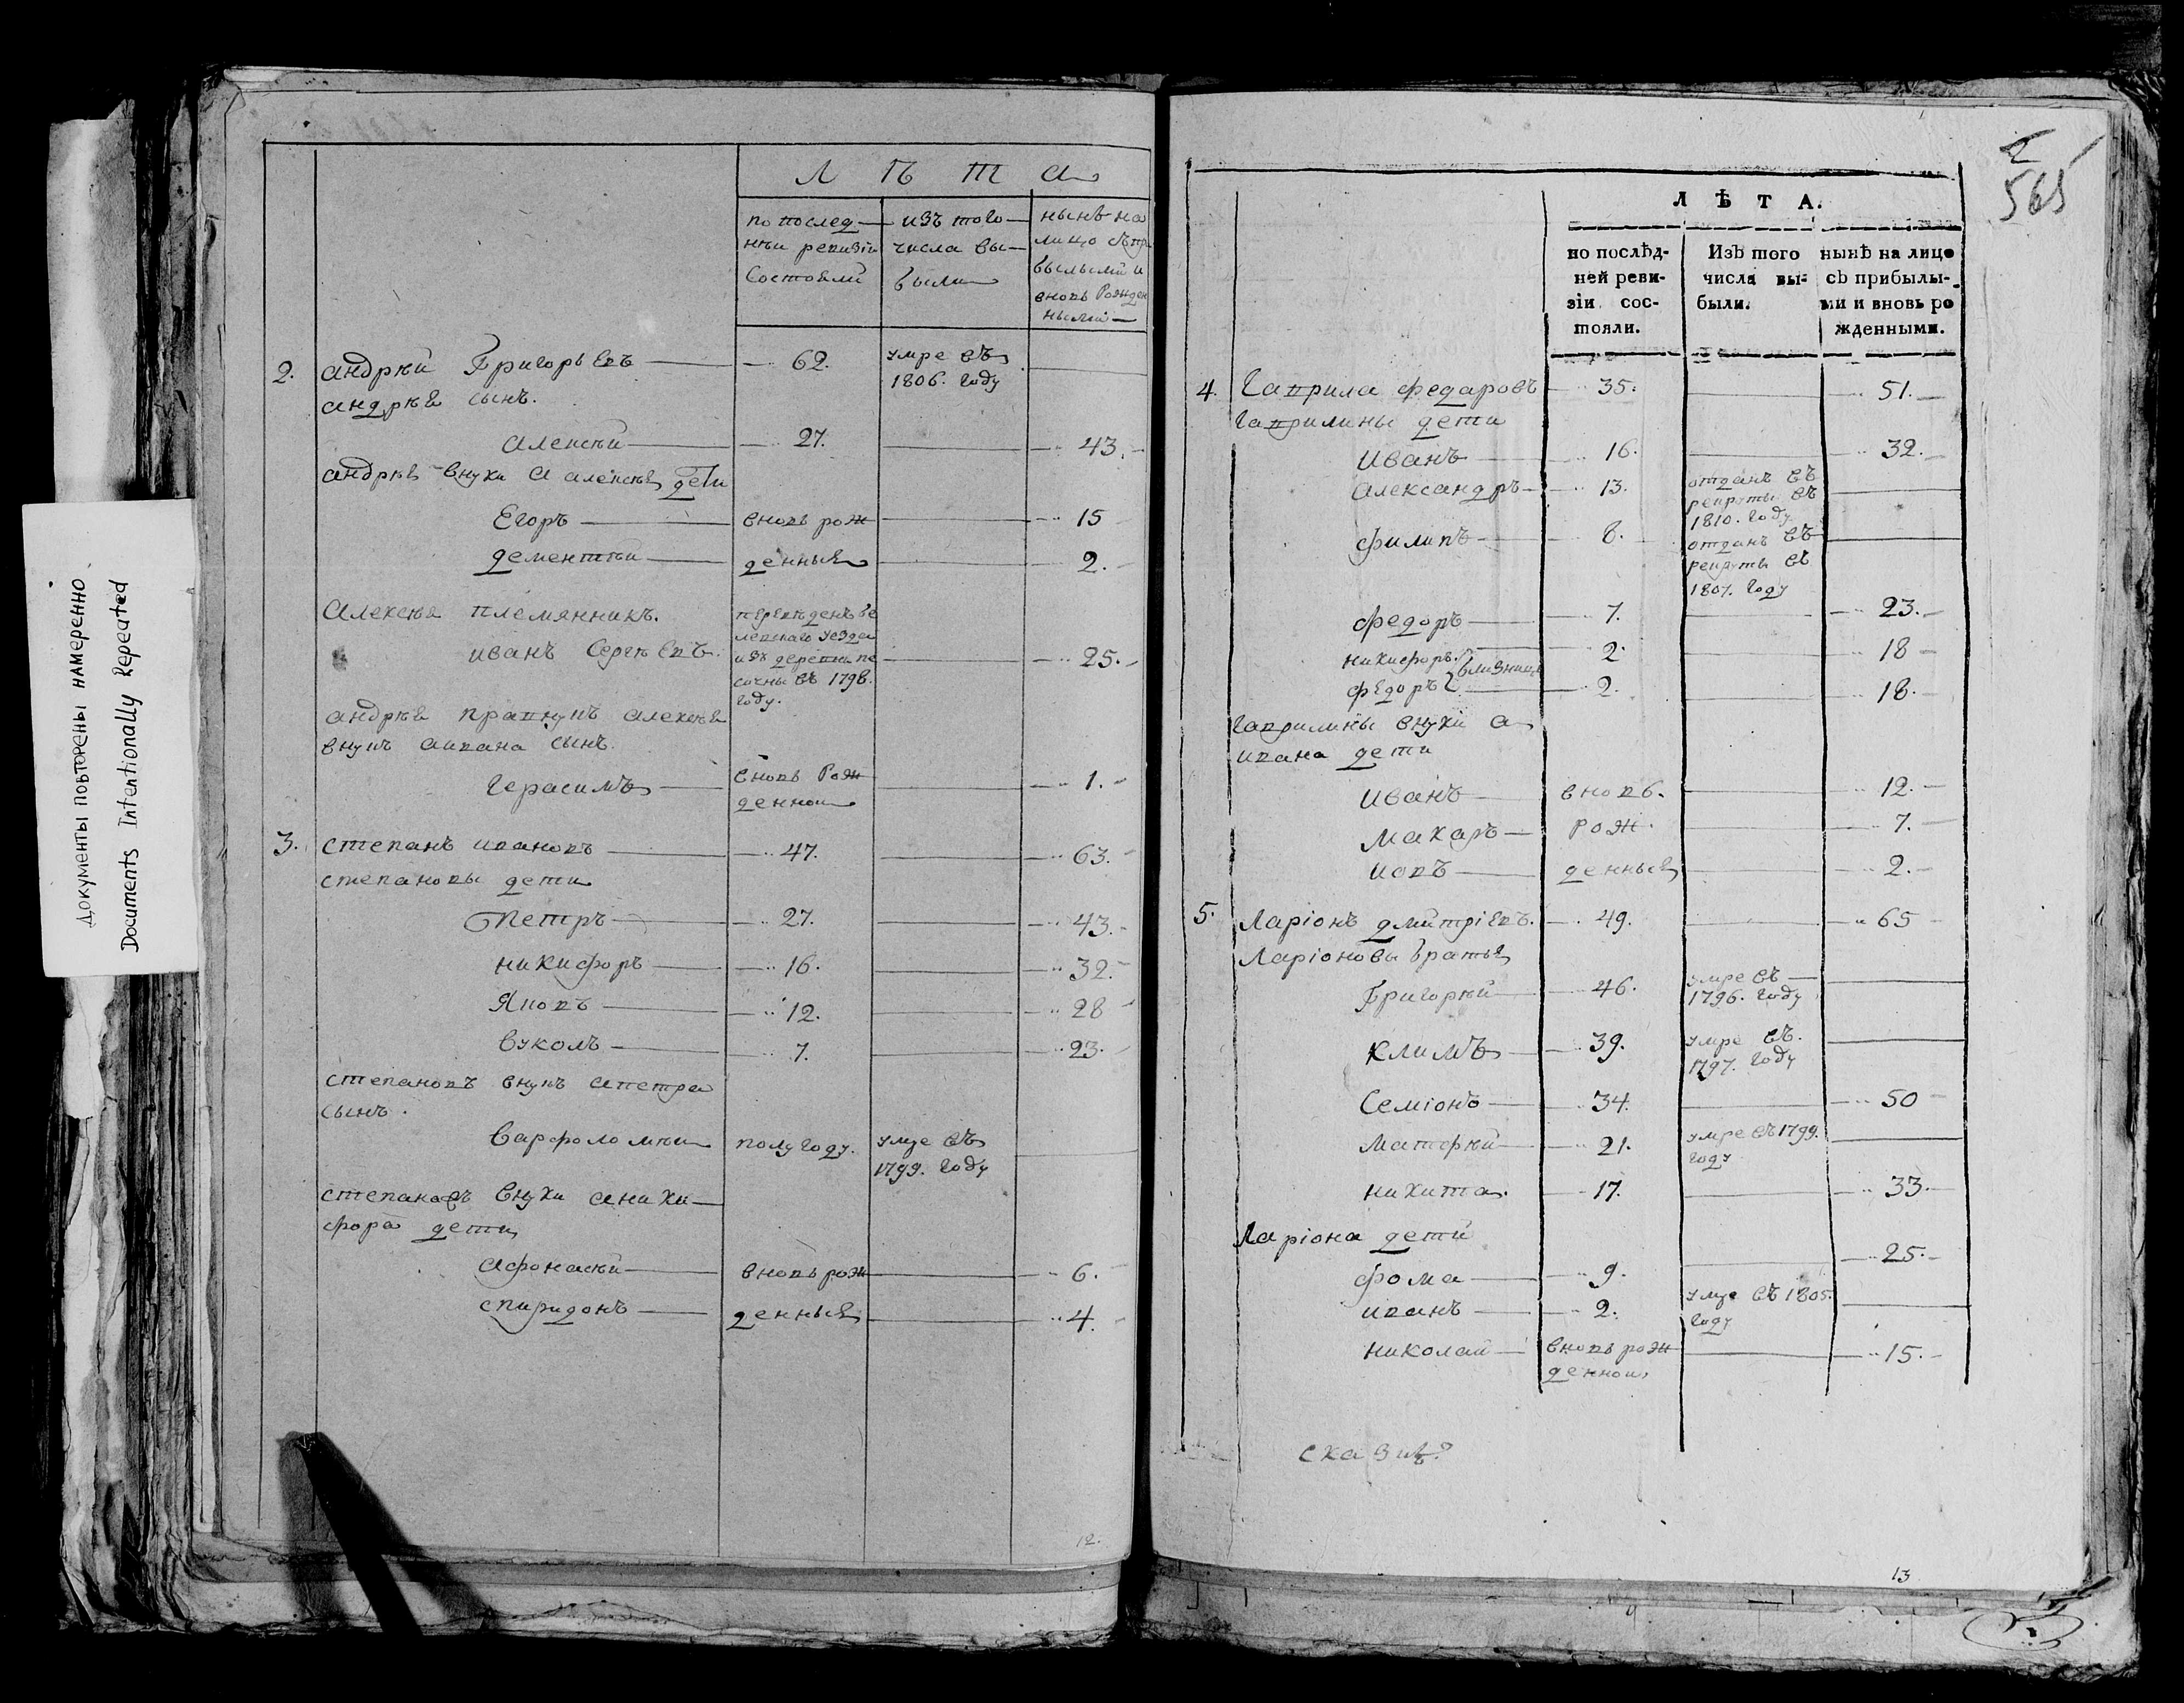 Документы повторены намеренно
Documents Intentionally Repeated
Л Ѣ Т А
по послед-
нѣи ревизіи
состояли
изъ того
числа вы-
были
нынѣ на
лицо съ при
былыми и
вновь рожден
ными
2. андрѣй Григорьевъ 62. умре въ
1806. году
андрѣя сынъ.
алексѣй 27. 43.
андрѣя внуки а алексѣя дети
Егоръ вновь рож 15
дементѣй денныя 2.
Алексѣя племянникъ.
иванъ Сергѣевъ. 25.
изъ деревни пе
сочны въ 1798.
году.
андрѣя правнукъ алексѣя
внукъ аивана сынъ.
Герасимъ вновь рож
денной 1.
3. степанъ ивановъ 47. 63.
степановы дети
Петръ 27. 43.
никифоръ 16. 32.
Яковъ 12. 28
вуколъ 7. 23.
степановъ внукъ апетра
сынъ.
варфоломѣй полугоду. умре въ
1799. году
степановъ внуки аники-
фора дети
афонасѣй вновь рож 6.
спиридонъ денныя 4.
12.
565
Л Ѣ Т А.
по послѣд-
ней реви-
зіи сос-
тояли.
Изъ того
числа вы-
были.
нынѣ на лице
съ прибылы-
ми и вновь ро
жденными.
4. Гаврила федаровъ 35. 51.
Гаврилины дети
иванъ 16. 32.
александръ 13. отданъ въ
рекруты въ
1810. году
филипъ 8. отданъ въ
рекруты въ
1807. году
федоръ 7. 23.
никифоръ 2. 18
близнецы
федоръ 2. 18.
Гаврилины внуки а
ивана дети
иванъ вновь 12.
макаръ рож 7.
иовъ денныя 2.
5. Ларіонъ дмитріевъ. 49. 65
Ларіоновы братья
Григорѣй 46. умре въ
1796. году
климъ 39. умре въ
1797. году
Семіонъ 34. 50
матфѣй 21. умре въ 1799.
году
никита 17. 33.
Ларіона дети
фома 9. 25.
иванъ 2. умре въ 1805.
году
николай вновь рож
денной 15.
13